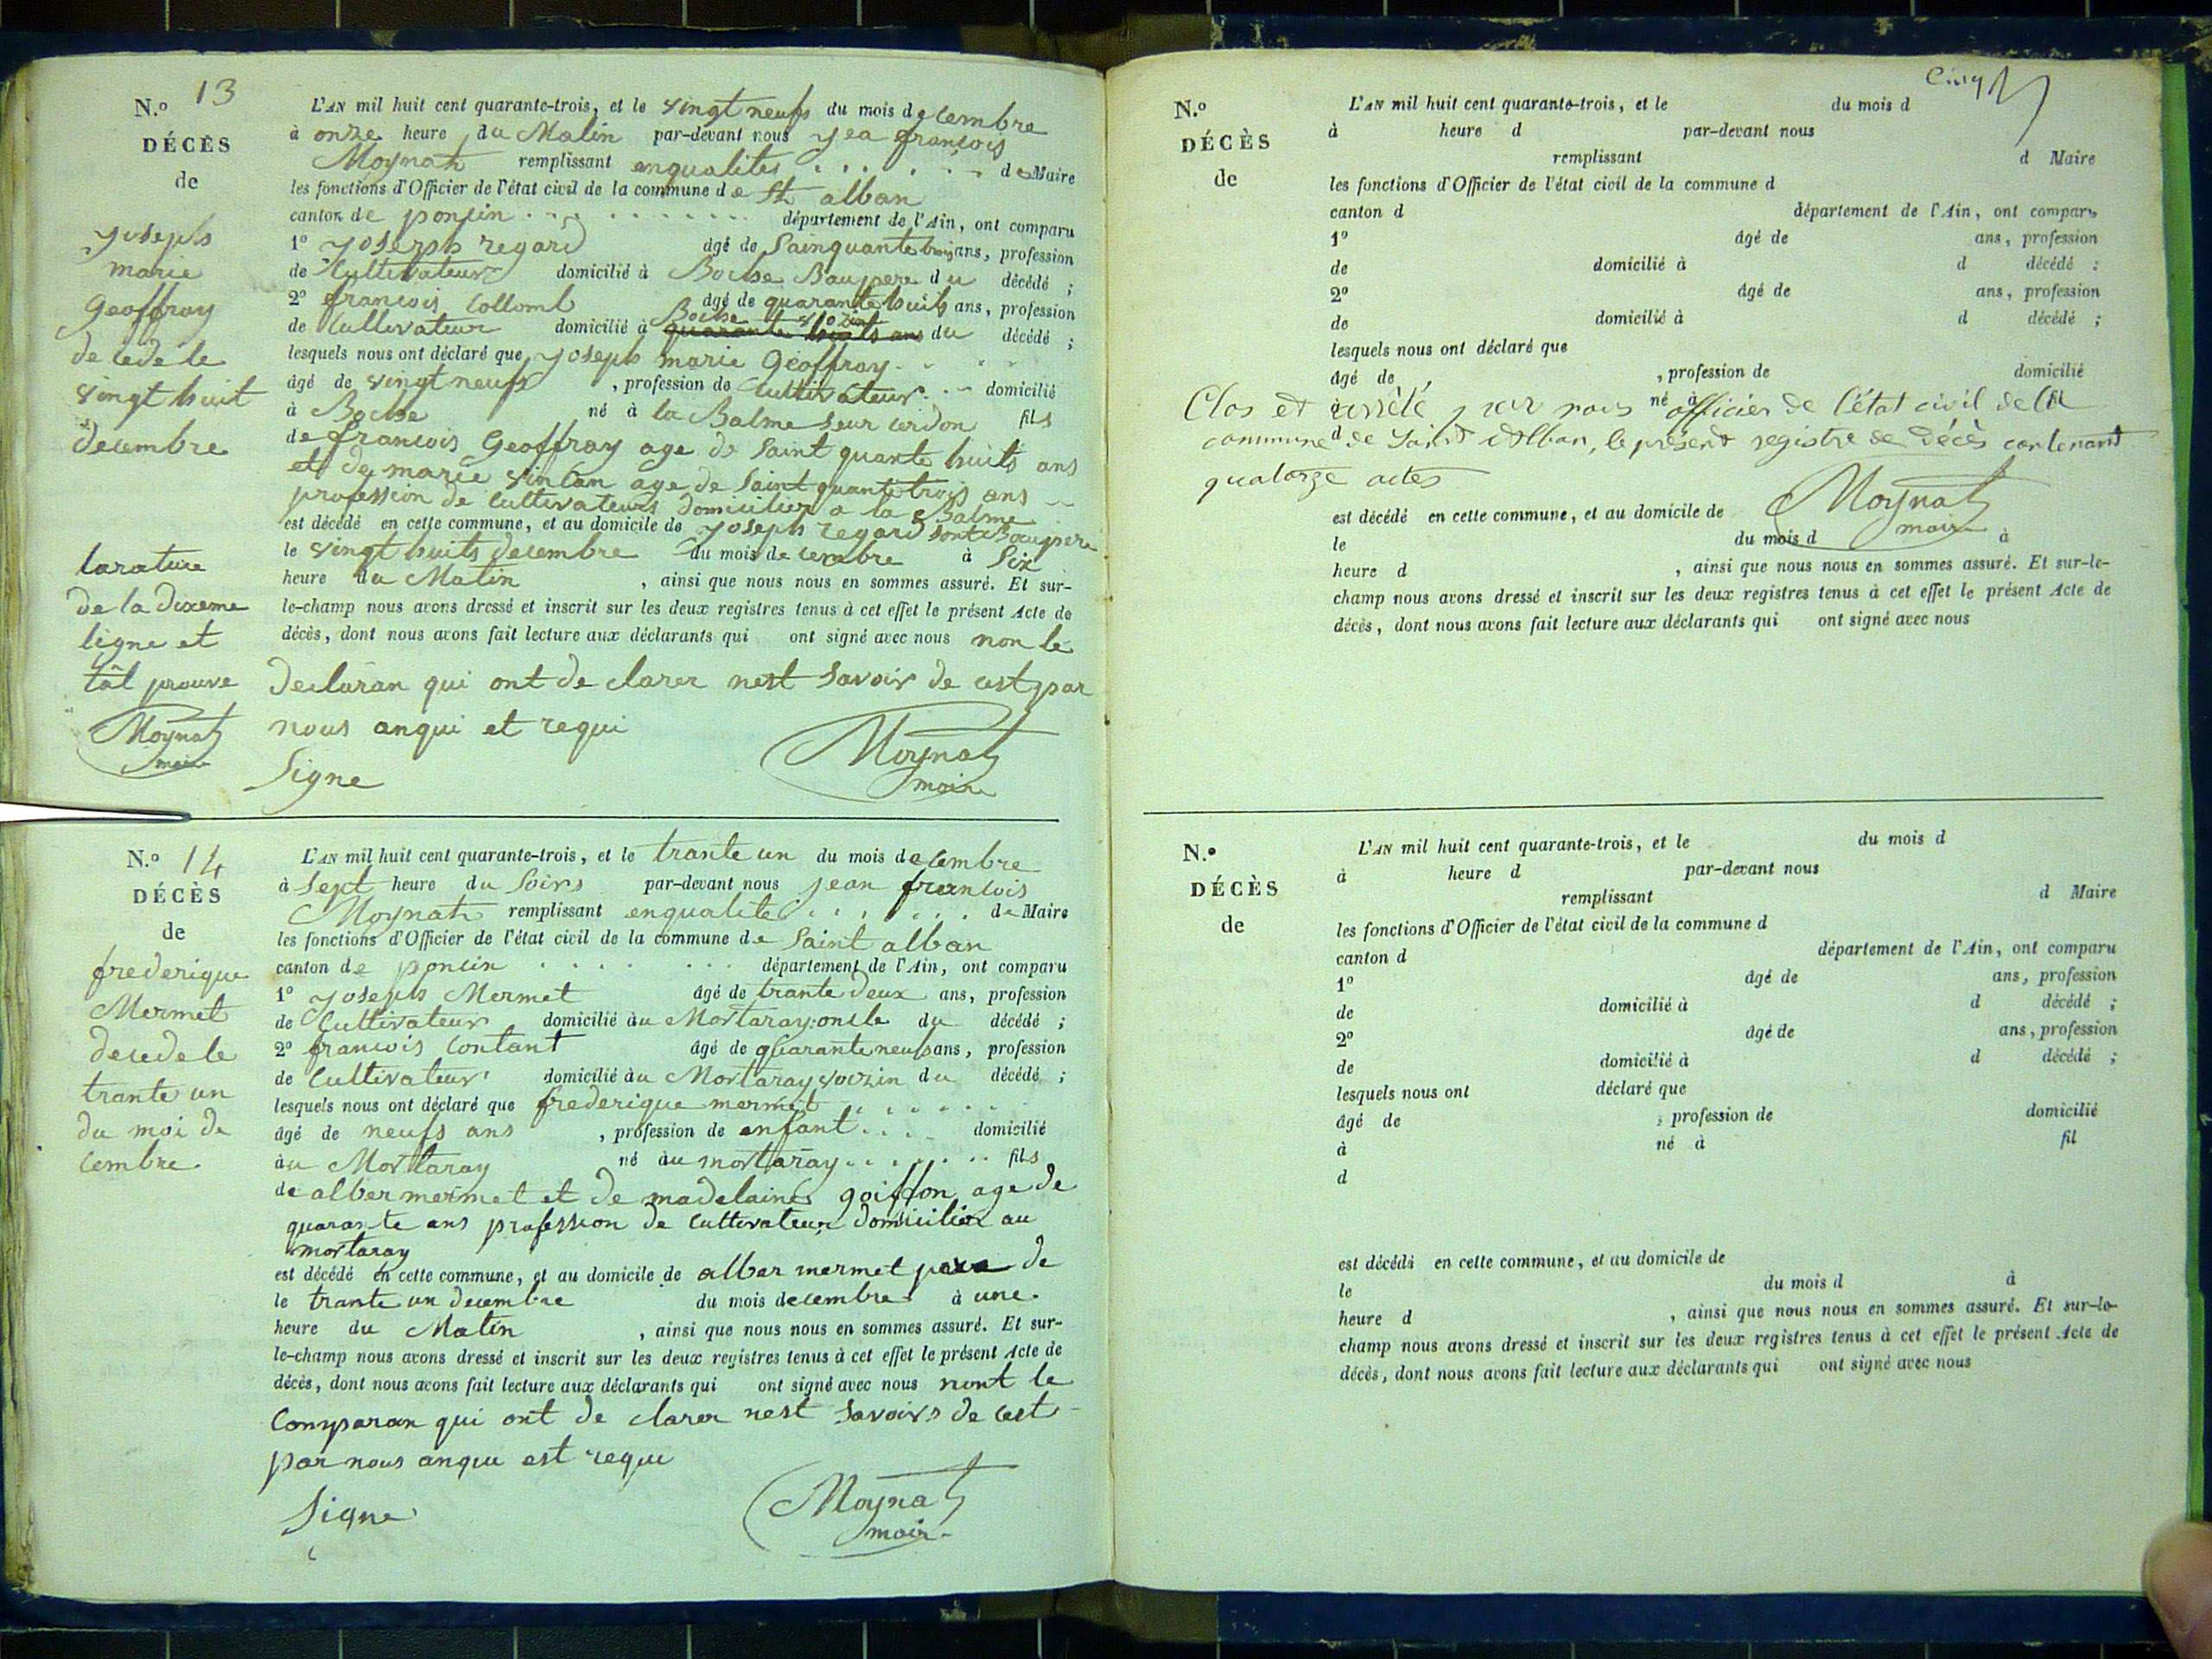 N.º 13
DÉCÈS
de
yoseph
marie
Geoffray
decede le
vingt huit
decembre
larature
de la dixeme
ligne et
tât prouve
Moynat
maire
L'AN mil huit cent quarante-trois, et le vingt neufs du mois decembre
à onze heure du Matin par-devant nous françois
Moynat remplissant enqualites de Maire
les fonctions d'Officier de l'état civil de la commune de St alban
canton de poncin département de l'Ain, ont comparu
1º yoseph regard âgé de Sainquante trois ans, profession
de Cultivateur domicilié à Boche Baupere du décédé ;
2º francois Collomb âgé de quarante huits ans, profession
de Cultivateur domicilié à Boche vozin quarante huits ans du décédé ;
lesquels nous ont déclaré que yoseph marie Geoffray
âgé de vingt neufs , profession de Cultivateur domicilié
à Boche né à la Balme Seur Cerdon fils
de francois Geoffray age de Saint quante huits ans
et de marie age de Saint quante trois ans
profession de Cultivateurs domicilier a la Balme
est décédé en cette commune, et au domicile de yoseph regard sont Baupere
le vingt huits decembre du mois decembre à Six
heure du Matin , ainsi que nous nous en sommes assuré. Et sur-
le-champ nous avons dressé et inscrit sur les deux registres tenus à cet effet le présent Acte de
décès, dont nous avons fait lecture aux déclarants qui ont signé avec nous non le
declaran qui ont de clarer nest Savoir de cest par
nous anqui et requi
Signe
Moynat
maire
N.º 14
DÉCÈS
de
frederique
Mermet
decede le
trante un
du moi de
cembre
L'AN mil huit cent quarante-trois, et le trante un du mois decembre
à Sept heure du Soirs par-devant nous jean francois
Moynat remplissant enqualite de Maire
les fonctions d'Officier de l'état civil de la commune de Saint alban
canton de poncin département de l'Ain, ont comparu
1º yoseph Mermet âgé de trante deux ans, profession
de Cultivateur domicilié àu Mortaray oncle du décédé ;
2º francois Contant âgé de quarante neufs ans, profession
de Cultivateur domicilié àu Mortaray vozin du décédé ;
lesquels nous ont déclaré que frederique mermet
âgé de neufs ans , profession de enfant domicilié
àu Mortaray né àu mortaray fils
de alber mermet et de madelaine goiffon age de
quarante ans profession de Cultivateur domicilier au
mortaray
est décédé en cette commune, et au domicile de alber mermet pere de
le trante un decembre du mois decembre à une
heure du Matin , ainsi que nous nous en sommes assuré. Et sur-
le-champ nous avons dressé et inscrit sur les deux registres tenus à cet effet le présent Acte de
décès, dont nous avons fait lecture aux déclarants qui ont signé avec nous nont le
Comparan qui ont de clarer nest Savoirs de cest
par nous anqui est requi
Signe
Moynat
maire
Cinq
N.º
DÉCÈS
de
L'AN mil huit cent quarante-trois, et le du mois d
à heure d par-devant nous
remplissant d Maire
les fonctions d'Officier de l'état civil de la commune d
canton d département de l'Ain, ont comparu
1º âgé de ans, profession
de domicilié à d décédé ;
2º âgé de ans, profession
de domicilié à d décédé ;
lesquels nous ont déclaré que
âgé de , profession de domicilié
à né à fil
d
Clos et arrêté par nous officier de l'état civil de la
commune de Saint Alban, le présent registre de décès contenant
quatorze actes
Moynat
maire
est décédé en cette commune, et au domicile de
le du mois d à
heure d , ainsi que nous nous en sommes assuré. Et sur-le-
champ nous avons dressé et inscrit sur les deux registres tenus à cet effet le présent Acte de
décès, dont nous avons fait lecture aux déclarants qui ont signé avec nous
N.º
DÉCÈS
de
L'AN mil huit cent quarante-trois, et le du mois d
à heure d par-devant nous
remplissant d Maire
les fonctions d'Officier de l'état civil de la commune d
canton d département de l'Ain, ont comparu
1º âgé de ans, profession
de domicilié à d décédé ;
2º âgé de ans, profession
de domicilié à d décédé ;
lesquels nous ont déclaré que
âgé de , profession de domicilié
à né à fil
d
est décédé en cette commune, et au domicile de
le du mois d à
heure d , ainsi que nous nous en sommes assuré. Et sur-le-
champ nous avons dressé et inscrit sur les deux registres tenus à cet effet le présent Acte de
décès, dont nous avons fait lecture aux déclarants qui ont signé avec nous